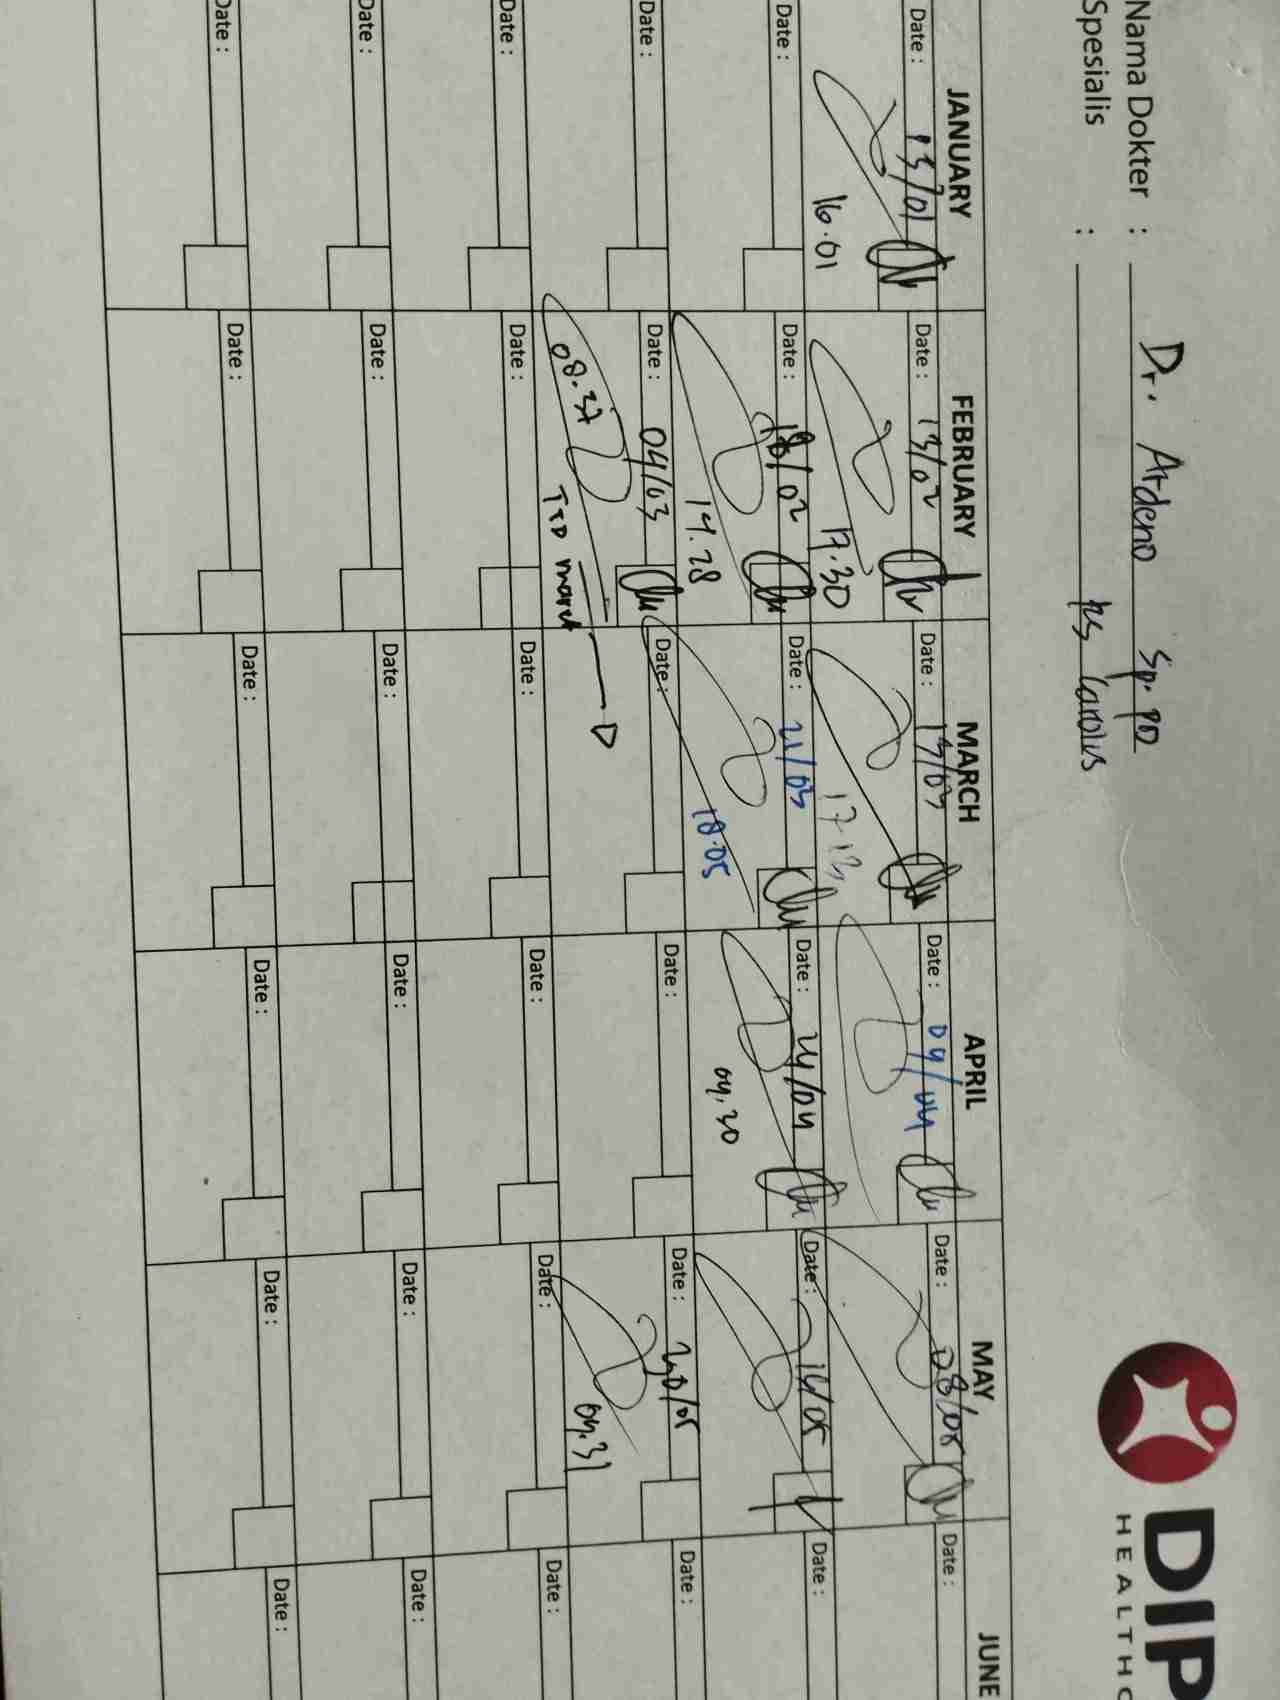 DIP
HEALTHC
Nama Dokter : Dr. Ardeno Sp.PD
Spesialis : RS Carolus
JANUARY FEBRUARY MARCH APRIL MAY JUNE
Date : 13/01 Date : 13/02 Date : 13/03 Date : 04/04 Date : 08/05 Date :
16.01 17.30 17.13
Date : Date : 18/02 Date : 21/03 Date : 24/04 Date : 14/05 Date :
14.28 18.05 04.30
Date : Date : 04/03 Date : Date : Date : 20/05 Date :
08.37 TTD maret 04.31
Date : Date : Date : Date : Date : Date :
Date : Date : Date : Date : Date : Date :
Date : Date : Date : Date : Date : Date :